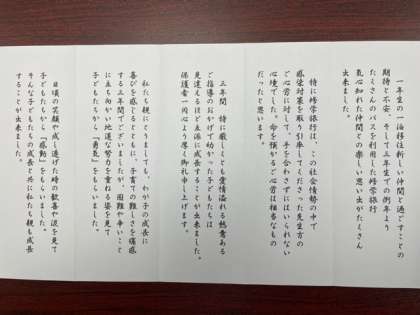 一年生の一泊移住新しい仲間と過ごすことの
期待と不安、そして三年生での例年より
たくさんのバスを利用した修学旅行
気心知れた仲間との楽しい思い出がたくさん
出来ました。
特に修学旅行は、この社会情勢の中で
感染対策を取り引率してくださった先生方の
ご心労に対して、手を合わさずにはいられない
心境でした。命を預かるご心労は相当なもの
だったと思います。
三年間、時に厳しくとも愛情溢れる熱意ある
ご指導のおかげで幼かった子どもたちは
見違えるほど立派に成長することが出来ました。
保護者一同心より厚く御礼申し上げます。
私たち親にとりましても、わが子の成長に
喜びを感じるとともに、子育ての難しさを痛感
する三年間でございましたが、困難や辛いこと
に立ち向かい地道な努力を重ねる姿を見て
子どもたちから「勇気」をもらいました。
日頃の笑顔や成し遂げた時の歓喜や涙を見て
子どもたちから「感動」をもらいました。
そんな子どもたちの成長と共に私たち親も成長
することが出来ました。